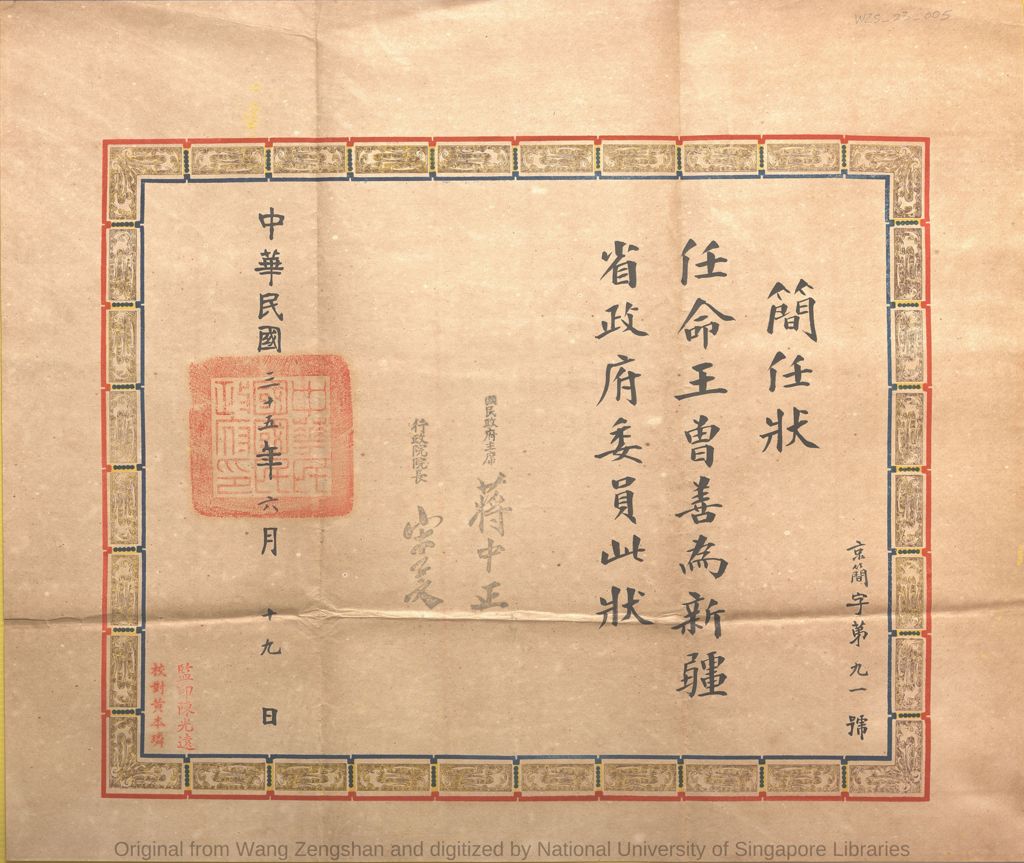 WZS_23_005
簡任狀
任命王曾善為新疆
省政府委員此狀
國民政府主席 蔣中正
行政院院長 宋子文
中華民國三十五年六月十九日
中華民
國國民
政府印
京簡字第九一號
監印陳光遠
校對黃本
Original from Wang Zengshan and digitized by National University of Singapore Libraries